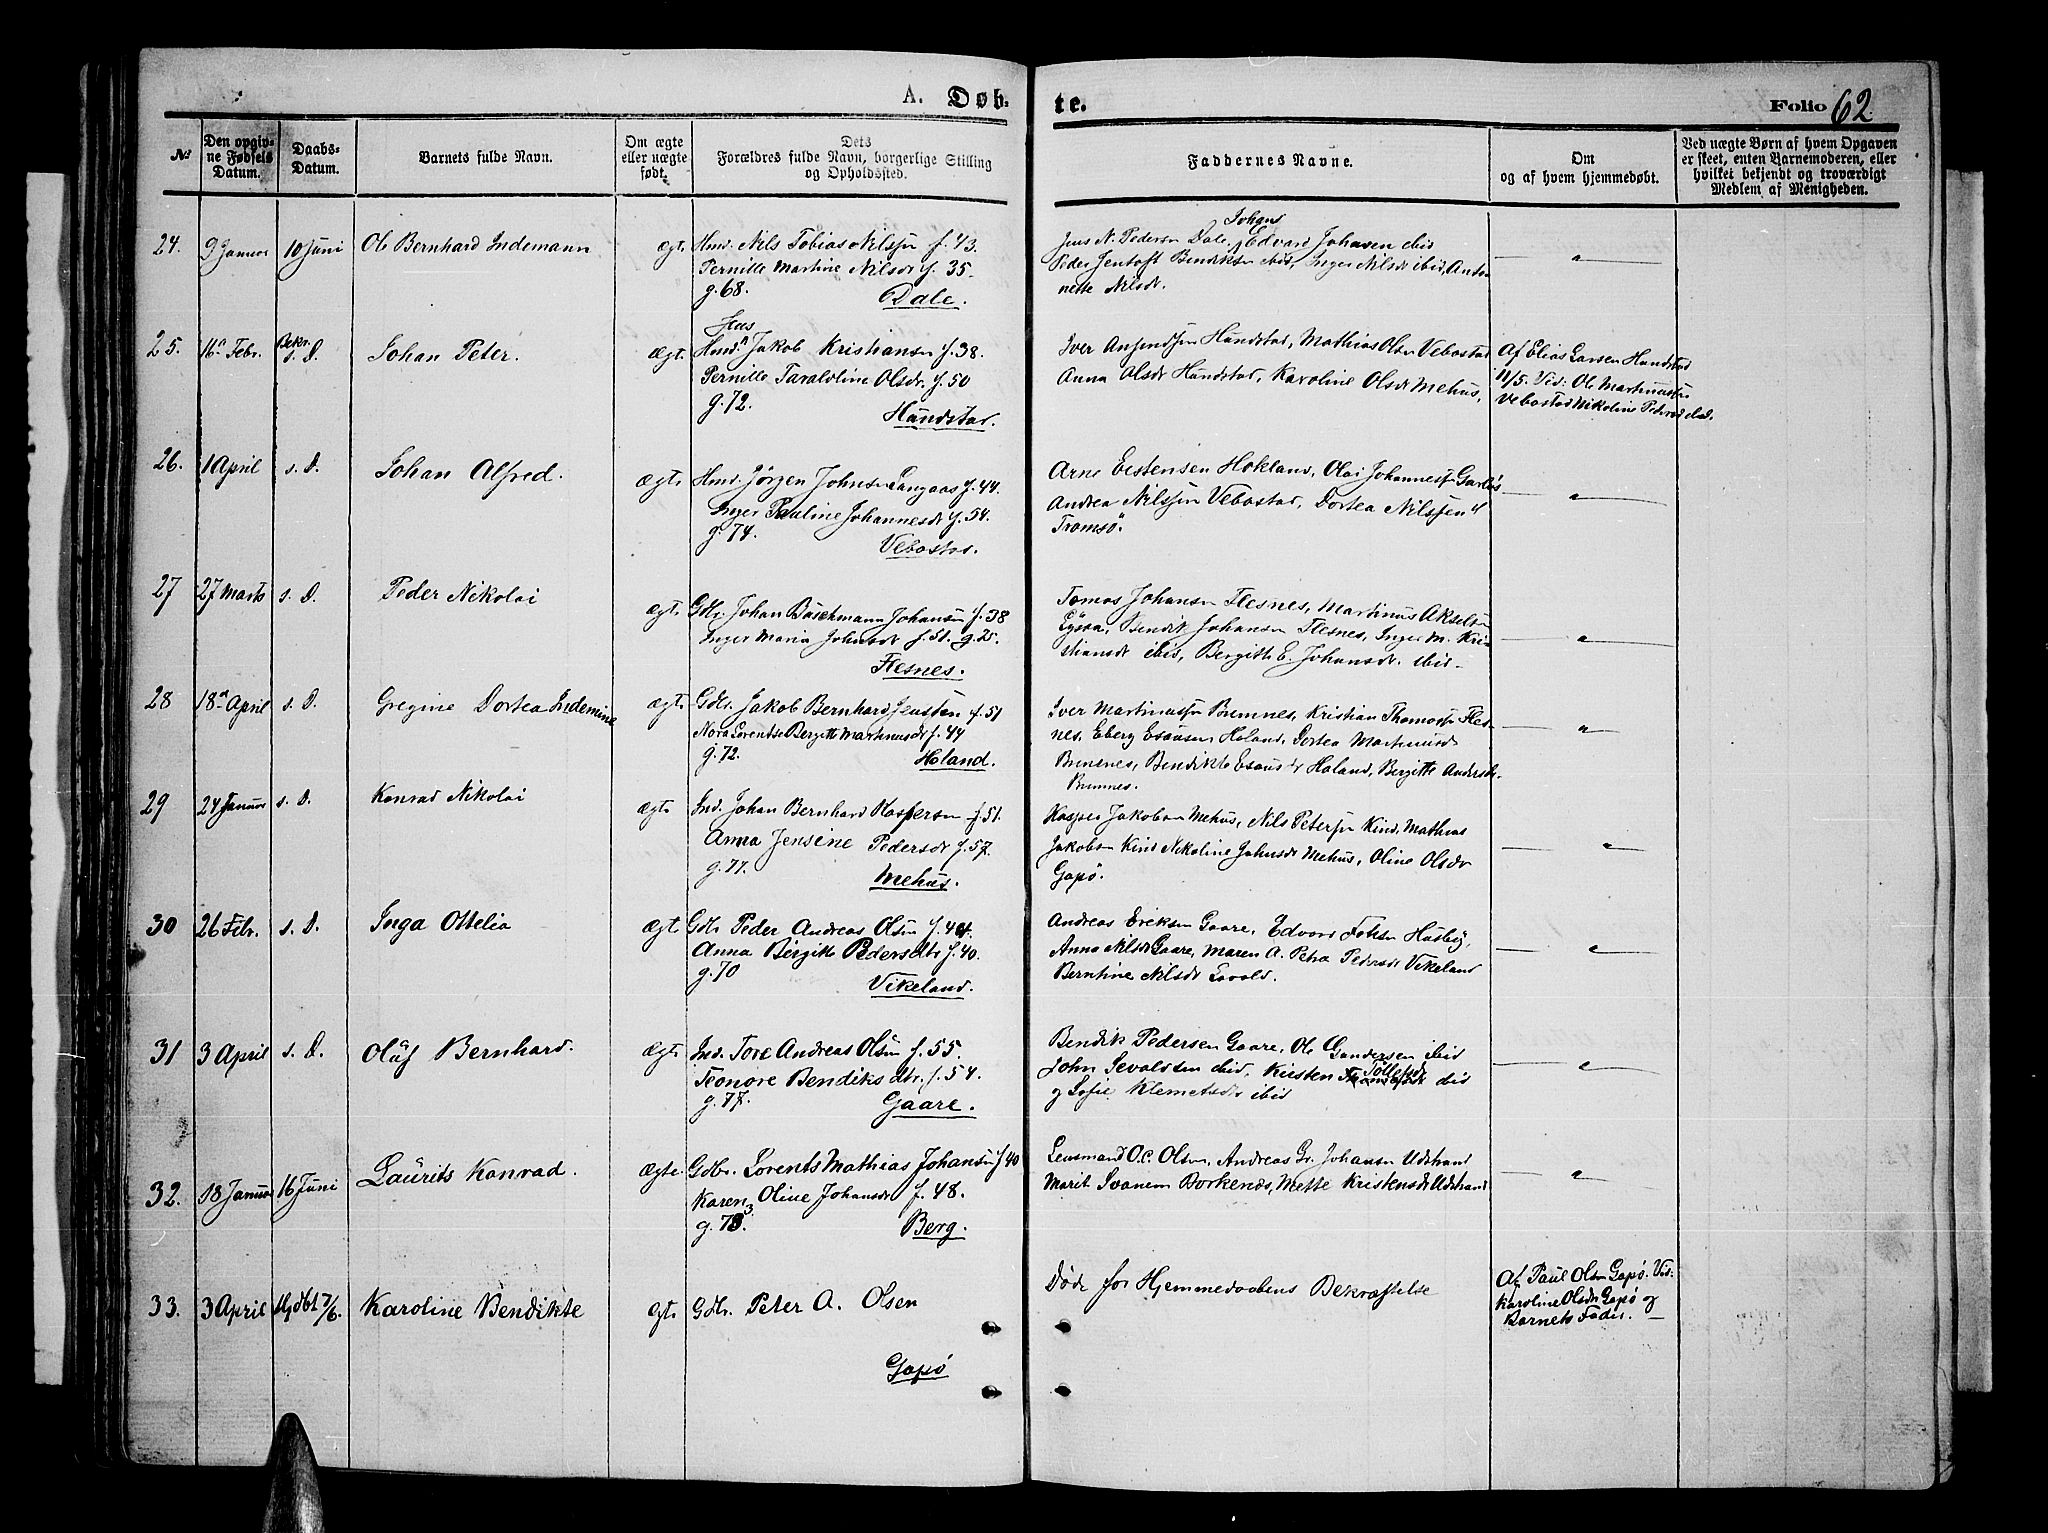 A. Døb-
te.
Folio 62
№
Den opgiv-
ne Fødsels
Datum.
Daabs-
Datum.
Barnets fulde Navn.
Om ægte
eller uægte
født.
Dets
Forældres fulde Navn, borgerlige Stilling
og Opholdssted.
Faddernes Navne.
Om
og af hvem hjemmedøbt.
Ved uægte Børn af hvem Opgaven
er skeet, enten Barnemoderen, eller
hvilket bekjendt og troværdigt
Medlem af Menigheden.
24. 9 Januar 10 Juni Ole Bernhard Indemann ægt. Hmd. Nils Tobias Nilssen f. 43.
Pernille Martine Nilsdr f. 35.
g. 68. Dale.
Johans
Jens N. Pedersen Dale, Edvard Johansen ibid
Peder Jentoft Bendiksen ibid, Inger Nilsdr ibid, Anto-
nette Nilsdr.
25. 16 Febr. Bekr. s. D. Johan Peter. ægt. Hmd. Jakob Kristiansen f. 38.
Pernille Taraldine Olsdr. f. 50
g. 72. Hundstad.
Iver Hundstad, Mathias Olsen Vebostad
Anna Olsdr Hundstad, Karoline Olsdr Mehus,
Af Elias Larsen Hundstad
11/5. Vid: Ole Martinussen
Vebostad Nikoline
26. 1 April s. D. Johan Alfred. ægt. Hmd. Jørgen Johnsen Langaas f. 44.
Inger Pauline Johannesdr f. 54.
g. 74. Vebostad.
Arne Eestensen Hokland, Olai Johannessen
Andrea Nilssen Vebostad, Dortea Nilssen
Tromsö.
27 27 Marts s. D. Peder Nikolai ægt. Gdbr. Johan Buschmann Johansen f. 38
Inger Maria Johnsdr f. 51. g. 75.
Flesnes.
Tomas Johansen Flesnes, Martinus Akselsen
Bendik Johansen Flesnes, Inger M. Kri-
stiansdr ibid, Bergitte E. Johansdr. ibid.
28 18 April s. D. Gregine Dortea Indemine ægt. Gdbr. Jakob Bernhard Jenssen f. 51
Nora Lorentse Bergitte Martinusdr f. 44
g. 72. Holand.
Iver Martinussen Bremnes, Kristian Thomassen Fles-
nes, Eberg Esausen Holand, Dortea Martinusdr
Bremnes, Bendikte Esausdr Holand, Bergitte Andersdr.
Bremnes.
29 24 Januar s. D. Konrad Nikolai ægt. Ind. Johan Bernhard Kaspersen f. 51.
Anna Jensine Pedersdr f. 57.
g. 77. Mehus.
Kasper Jakobsen Mehus, Nils Petersen Kind, Mathias
Jakobsen Kind Nikoline Johnsdr Mehus, Oline Olsdr
Gapø.
30 26 Febr. s. D. Inga Ottelia ægt Gdbr Peder Andreas Olsen f. 44.
Anna Birgitte Pedersdtr f. 40.
g. 70 Vikeland.
Andreas Eriksen Gaare, Edvard Husby,
Anna Nilsdr Gaare, Maren A. Petra Pedersdr Vikeland
Berntine Nilsdr
31 3 April s. D. Oluf Bernhard. ægt. Ind. Tore Andreas Olsen f. 55.
Leonore Bendiksdtr. f. 54.
g. 77. Gaare.
Bendik Pedersen Gaare, Ole Gundersen ibid
John Sevaldsen ibid, Kirsten Tollefsdr ibid
og Sofie Klemetsdr ibid
32. 18 Januar 16 Juni Laurits Konrad. ægte. Gdbr. Lorents Mathias Johansen f. 40
Karen Oline Johansdr f. 48.
g. 73. Berg.
Lensmand O. C. Olsen, Andreas Gr. Johansen Udstrand
Marit Svanem Borkenes, Mette Kristensdr Udstrand
33. 3 April Hjdbt 7/6. Karoline Bendikte ægt. Gdbr. Peter A. Olsen
Gapø
Døde før Hjemmedaabens Bekræftelse
Af Paul Olsen Gapø. Vid.
Karoline Olsdr Gapø og
Barnets Fader.